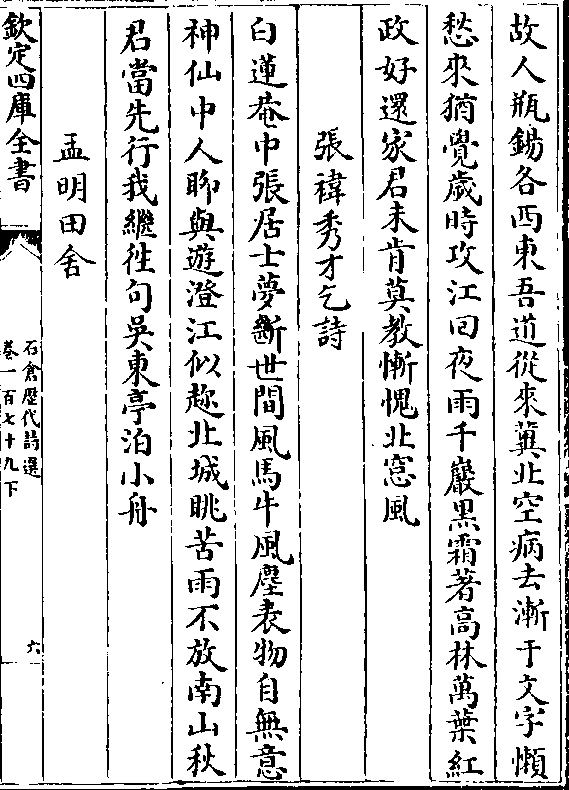 故人瓶錫各西東吾道從來冀北空病去漸于文字懶
愁來猶覺歲時攻江囘夜雨千巖黑霜著高林萬葉紅
政好還家君未肯莫教慚愧北窓風
張褘秀才乞詩
白蓮菴中張居士夢斷世間風馬牛風塵表物自無意
神仙中人聊與遊澄江似趂北城眺苦雨不放南山秋
君當先行我繼徃句吳東亭泊小舟
孟明田舍
欽定四庫全書
石倉歷代詩選
卷一百七十九下
六